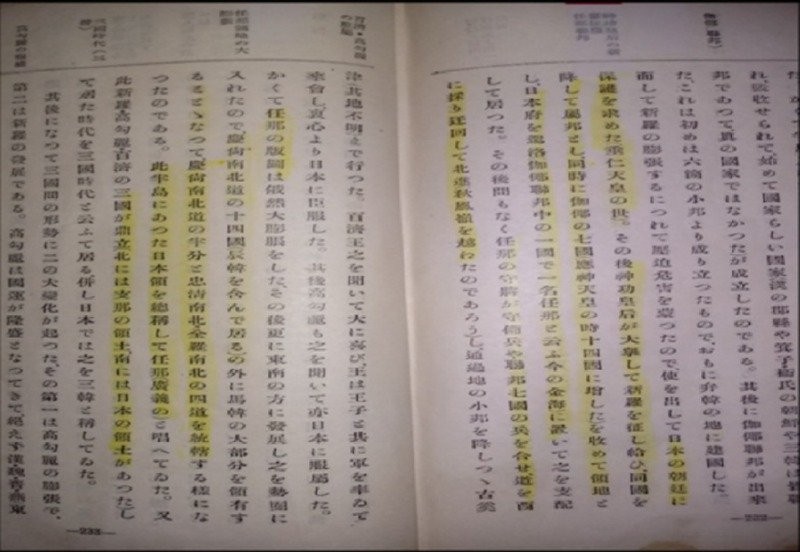 國家らしい國家漢の郡縣や箕子衞氏の朝鮮や三韓は皆聯
邦であつて、眞の國家ではなかつたが成立したのである。其後に伽倻聯邦が出來
た、これは初めは六箇の小邦より成り立つたもので、おもに弁韓の地に建國した。
而して新羅の膨脹するにつれて壓迫危害を蒙つたので、使を出して日本の朝廷に
保護を求めた垂仁天皇の世。その後神功皇后が大擧して新羅を征し給ひ、同國を
降して屬邦とし同時に伽倻の七國應神天皇の時十四國に增したを收めて領地と
し、日本府を駕洛伽倻聯邦中の一國で一名任那と云ふ今の金海に置いて之を支配
して居つた。その後間もなく任那の守將が守備兵や聯邦七國の兵を合せ、道を西
に採り迂回して北進秋風嶺を越わたのであろう)し通過地の小邦を降しつゝ古奚
津其地不明まで行つた。百濟王之を聞いて大に喜び、王は王子と共に軍を率ゐて
來會し、衷心より日本に臣服した。其後高勾麗も之を聞いて亦日本に服屬した。
かくて任那の版圖は俄然大膨脹をした、その後更に東南の方に發展し之を勢圏に
入れたので慶尙南北道の十四國辰韓を含んで居る)の外に馬韓の大部分を領有す
ることゝなつて慶尙南北道の半分と忠淸南北全羅南北の四道を統轄する樣にな
つたのである。此半島にあつた日本領を總稱して任那廣義のと唱へてゐた。又
此新羅高勾麗百濟の三國が鼎立北には支那の領土、南には日本の領土があつた)し
て居た時代を三國時代と云ふて居る併し日本では之を三韓と稱してゐた。
其後になつて三國間の形勢に二の大變化が起つた、その第一は高勾麗の膨脹で、
第二は新羅の發展である。高勾麗は國運が隆盛となつてきて絕えず漢魏晋燕東
—233—